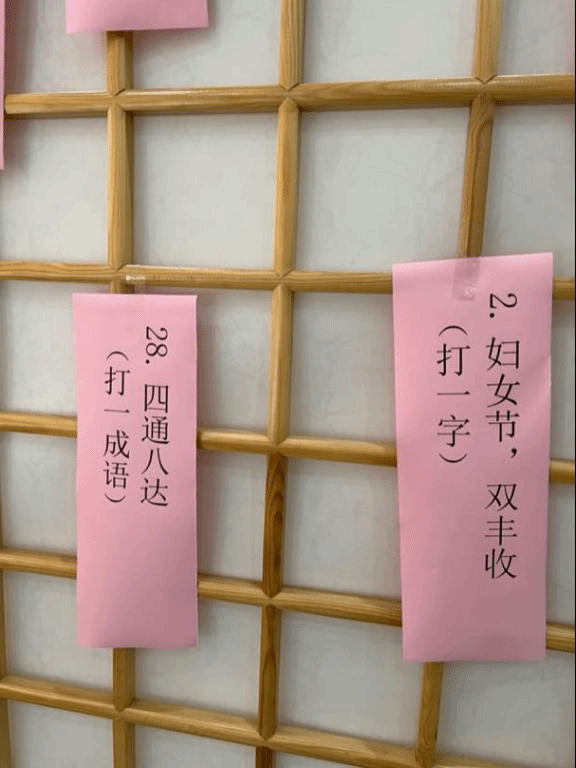 2. 妇女节，双丰收
（打一字）
28. 四通八达
（打一成语）